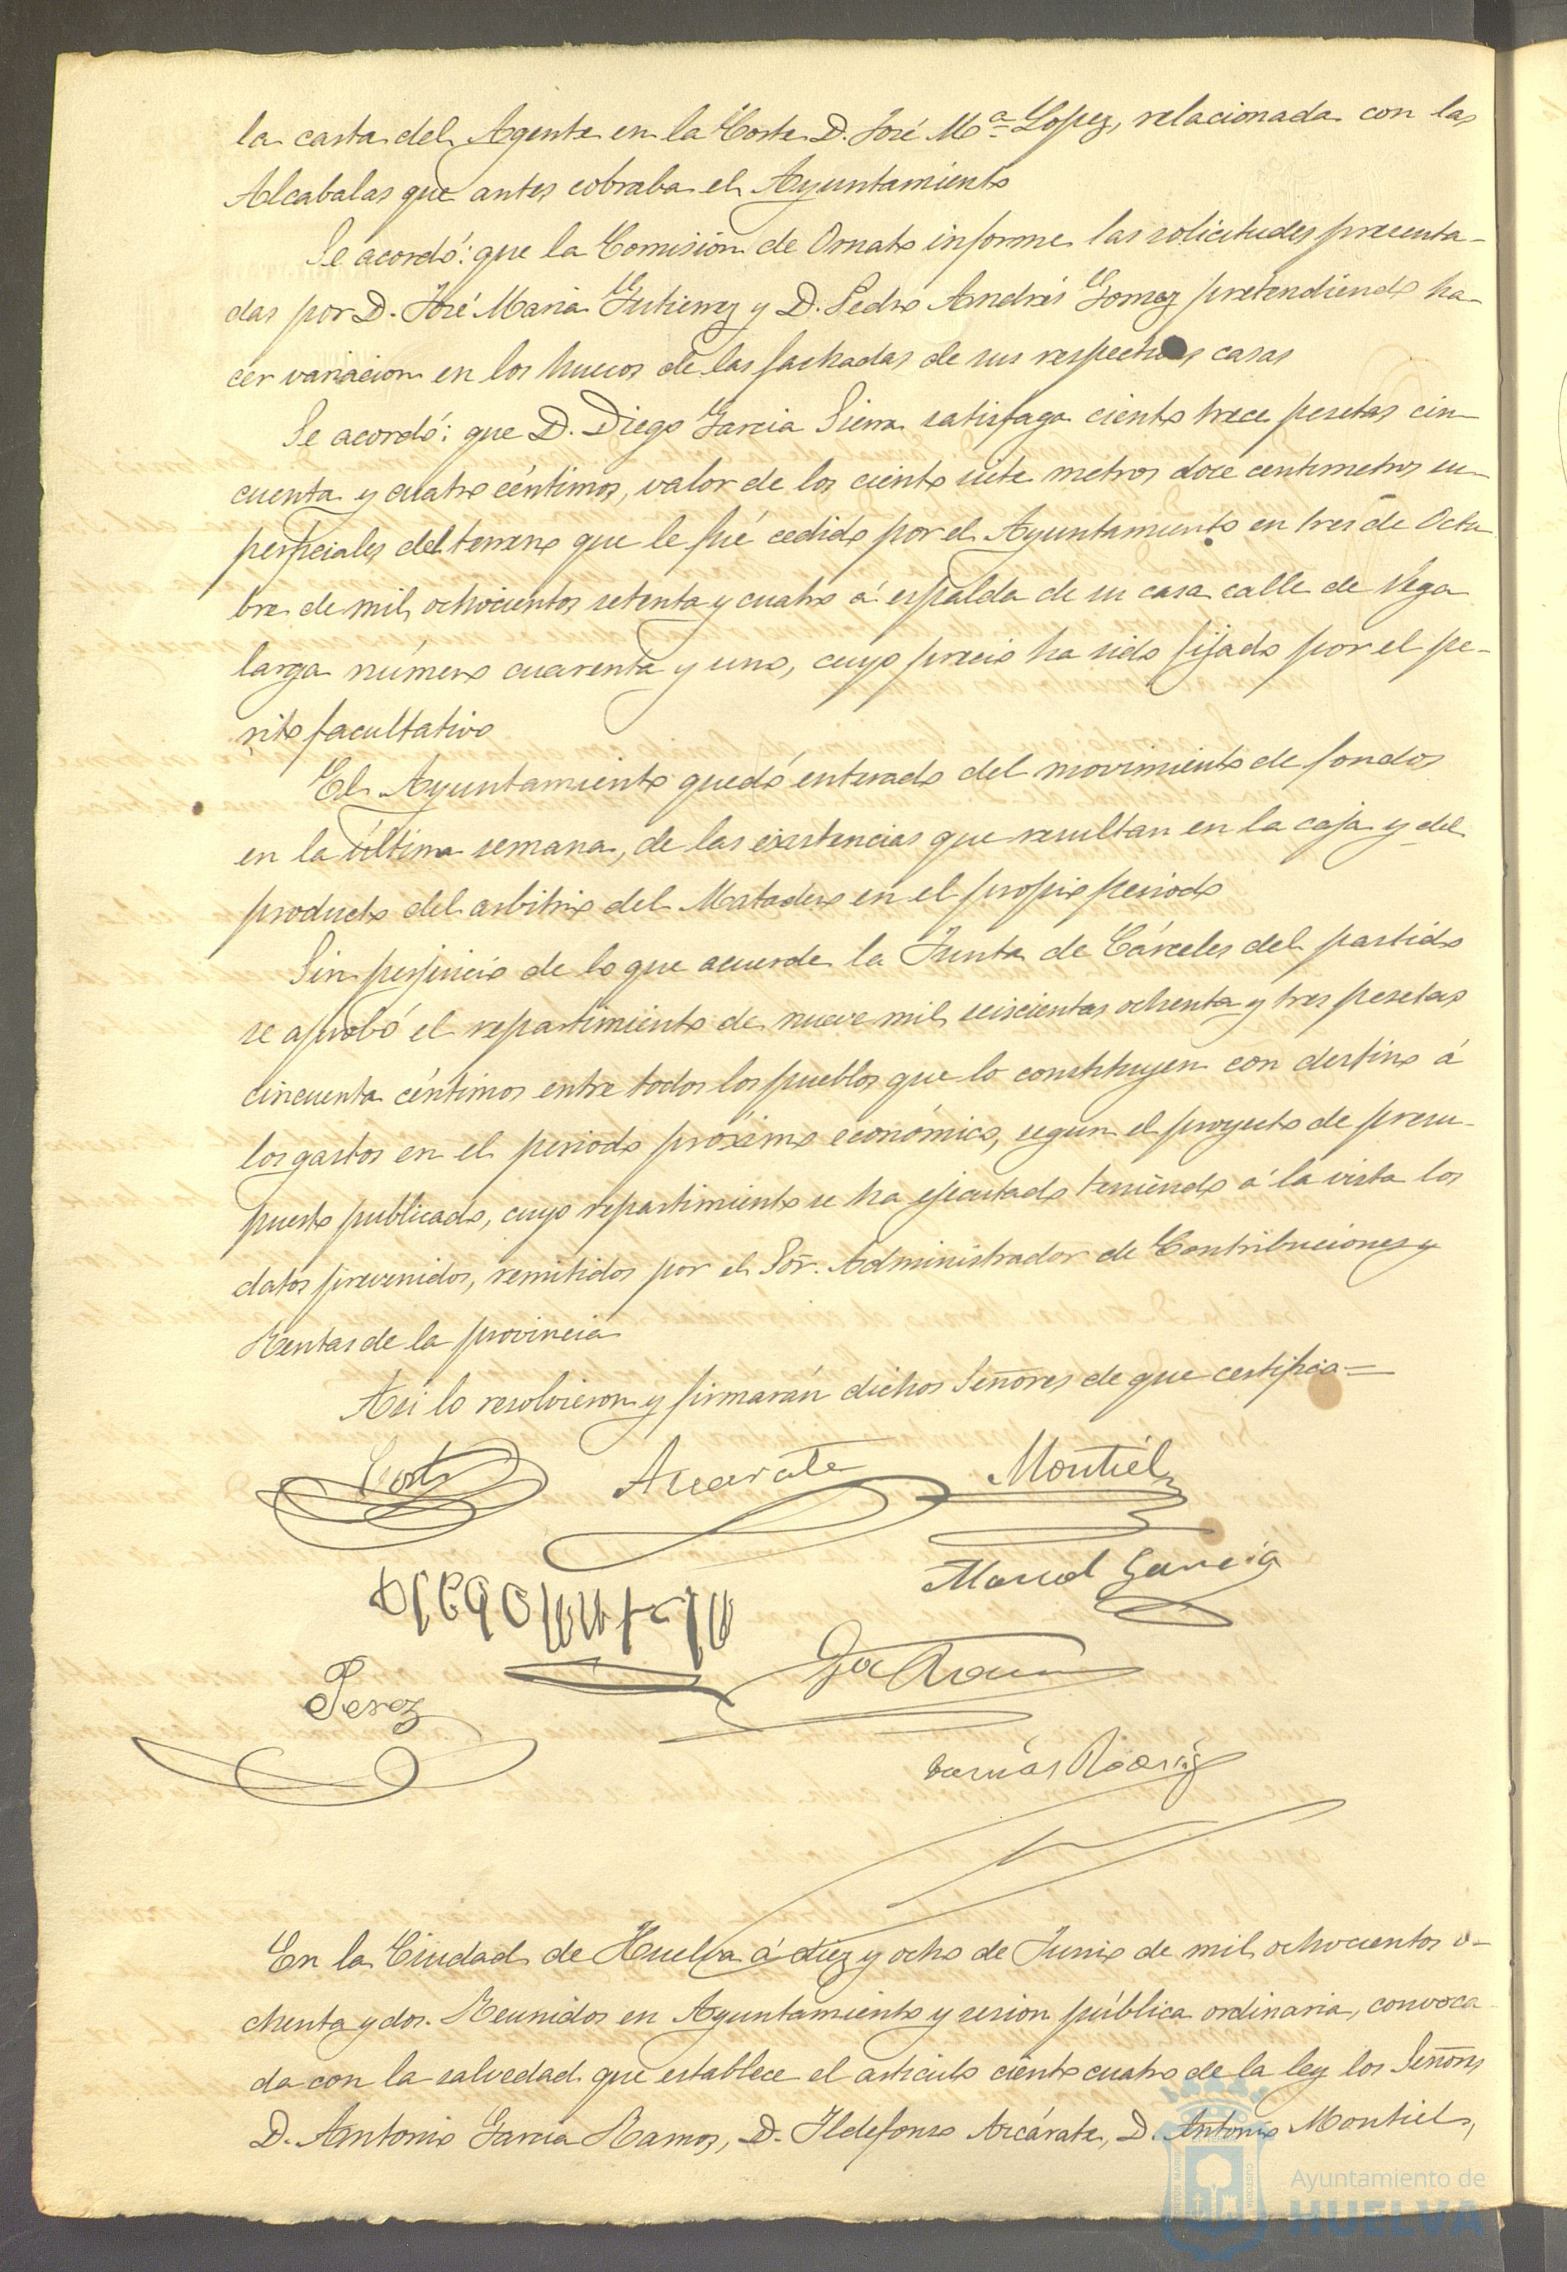 la carta del Agente en la Corte D. José Mª Lopez, relacionada con las
Alcabalas que antes cobraba el Ayuntamiento
Se acordó: que la Comision de Ornato informe las solicitudes presenta-
das por D. José Maria Gutierrez y D. Pedro Andrés Gomez pretendiendo ha-
cer variacion en los huecos de las fachadas de sus respectivas casas
Se acordó: que D. Diego Garcia Sierra satisfaga ciento trece pesetas cin-
cuenta y cuatro céntimos, valor de los ciento siete metros doce centimetros su-
perficiales del terreno que le fué cedido por el Ayuntamiento en tres de Octu
bre de mil ochocientos setenta y cuatro á espalda de su casa calle de Vega
larga número cuarenta y uno, cuyo precio ha sido fijado por el pe-
rito facultativo
El Ayuntamiento quedó enterado del movimiento de fondos
en la última semana, de las existencias que resultan en la caja y del
producto del arbitrio del Matadero en el propio periodo
Sin perjuicio de lo que acuerde la Junta de Cárceles del partido
se aprobó el repartimiento de nueve mil seiscientas ochenta y tres pesetas
cincuenta céntimos entre todos los pueblos que lo constituyen con destino á
los gastos en el periodo próximo económico, segun el proyecto de presu-
puesto publicado, cuyo repartimiento se ha ejecutado teniendo á la vista los
datos prevenidos, remitidos por el Sor. Administrador de Contribuciones y
Rentas de la provincia
Asi lo resolvieron y firmarán dichos Señores de que certifico=
Azcarate Montiel
Manuel Garcia
Perez
En la Ciudad de Huelva á diez y ocho de Junio de mil ochocientos o-
chenta y dos. Reunidos en Ayuntamiento y sesion pública ordinaria, convoca
da con la salvedad que establece el artículo ciento cuatro de la ley los Señores
D. Antonio Garcia Ramos, D. Ildefonso Azcárate, D. Antonio Montiel,
Ayuntamiento de
HUELVA